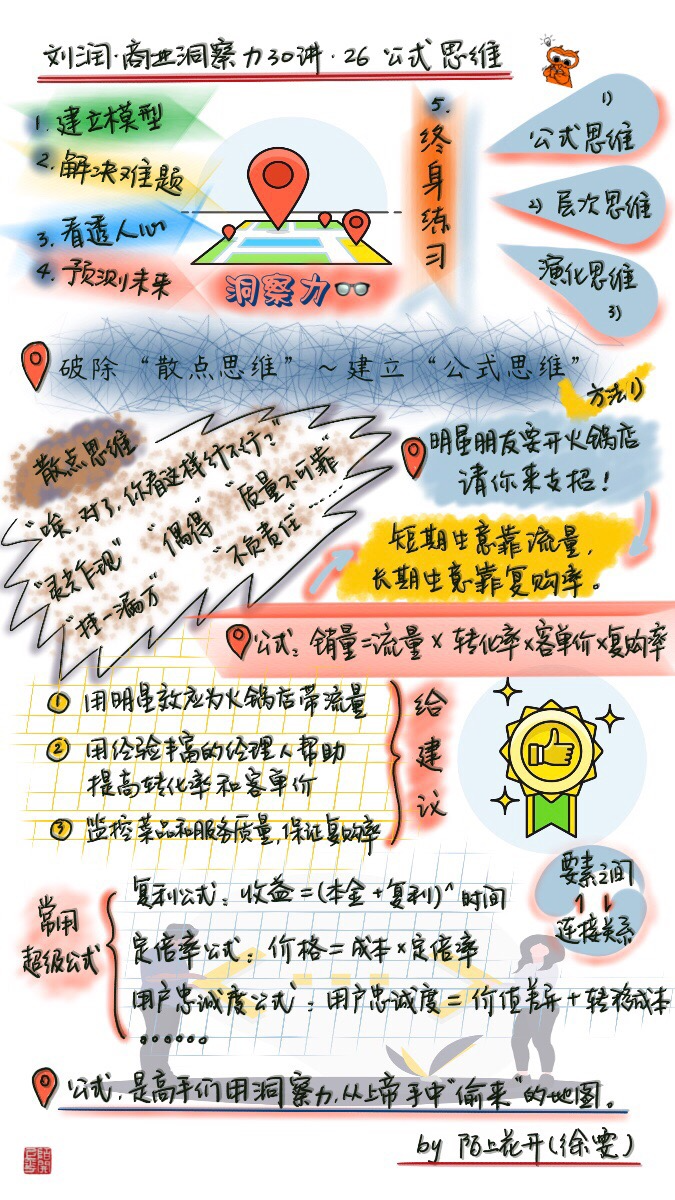 刘润·商业洞察力30讲·26 公式思维
1. 建立模型
2. 解决难题
3. 看透人心
4. 预测未来
洞察力
5. 终身练习
1) 公式思维
2) 层次思维
演化思维 3)
破除“散点思维”~建立“公式思维”
方法1)
散点思维
“唉,对了,你看这样行不行?”
“灵光乍现” “偶得” “质量不可靠”
“挂一漏万” “不负责任”……
明星朋友要开火锅店
请你来支招!
短期生意靠流量,
长期生意靠复购率。
公式: 销量=流量×转化率×客单价×复购率
① 用明星效应为火锅店带流量
② 用经验丰富的经理人帮助
提高转化率和客单价
③ 监控菜品和服务质量,保证复购率
给建议
常用
超级公式
复利公式: 收益=(本金+复利)^时间
定倍率公式: 价格=成本×定倍率
用户忠诚度公式: 用户忠诚度=价值差异+转移成本
……
要素之间
连接关系
公式,是高手们用洞察力,从上帝手中“偷来”的地图。
by 陌上花开(徐雯)